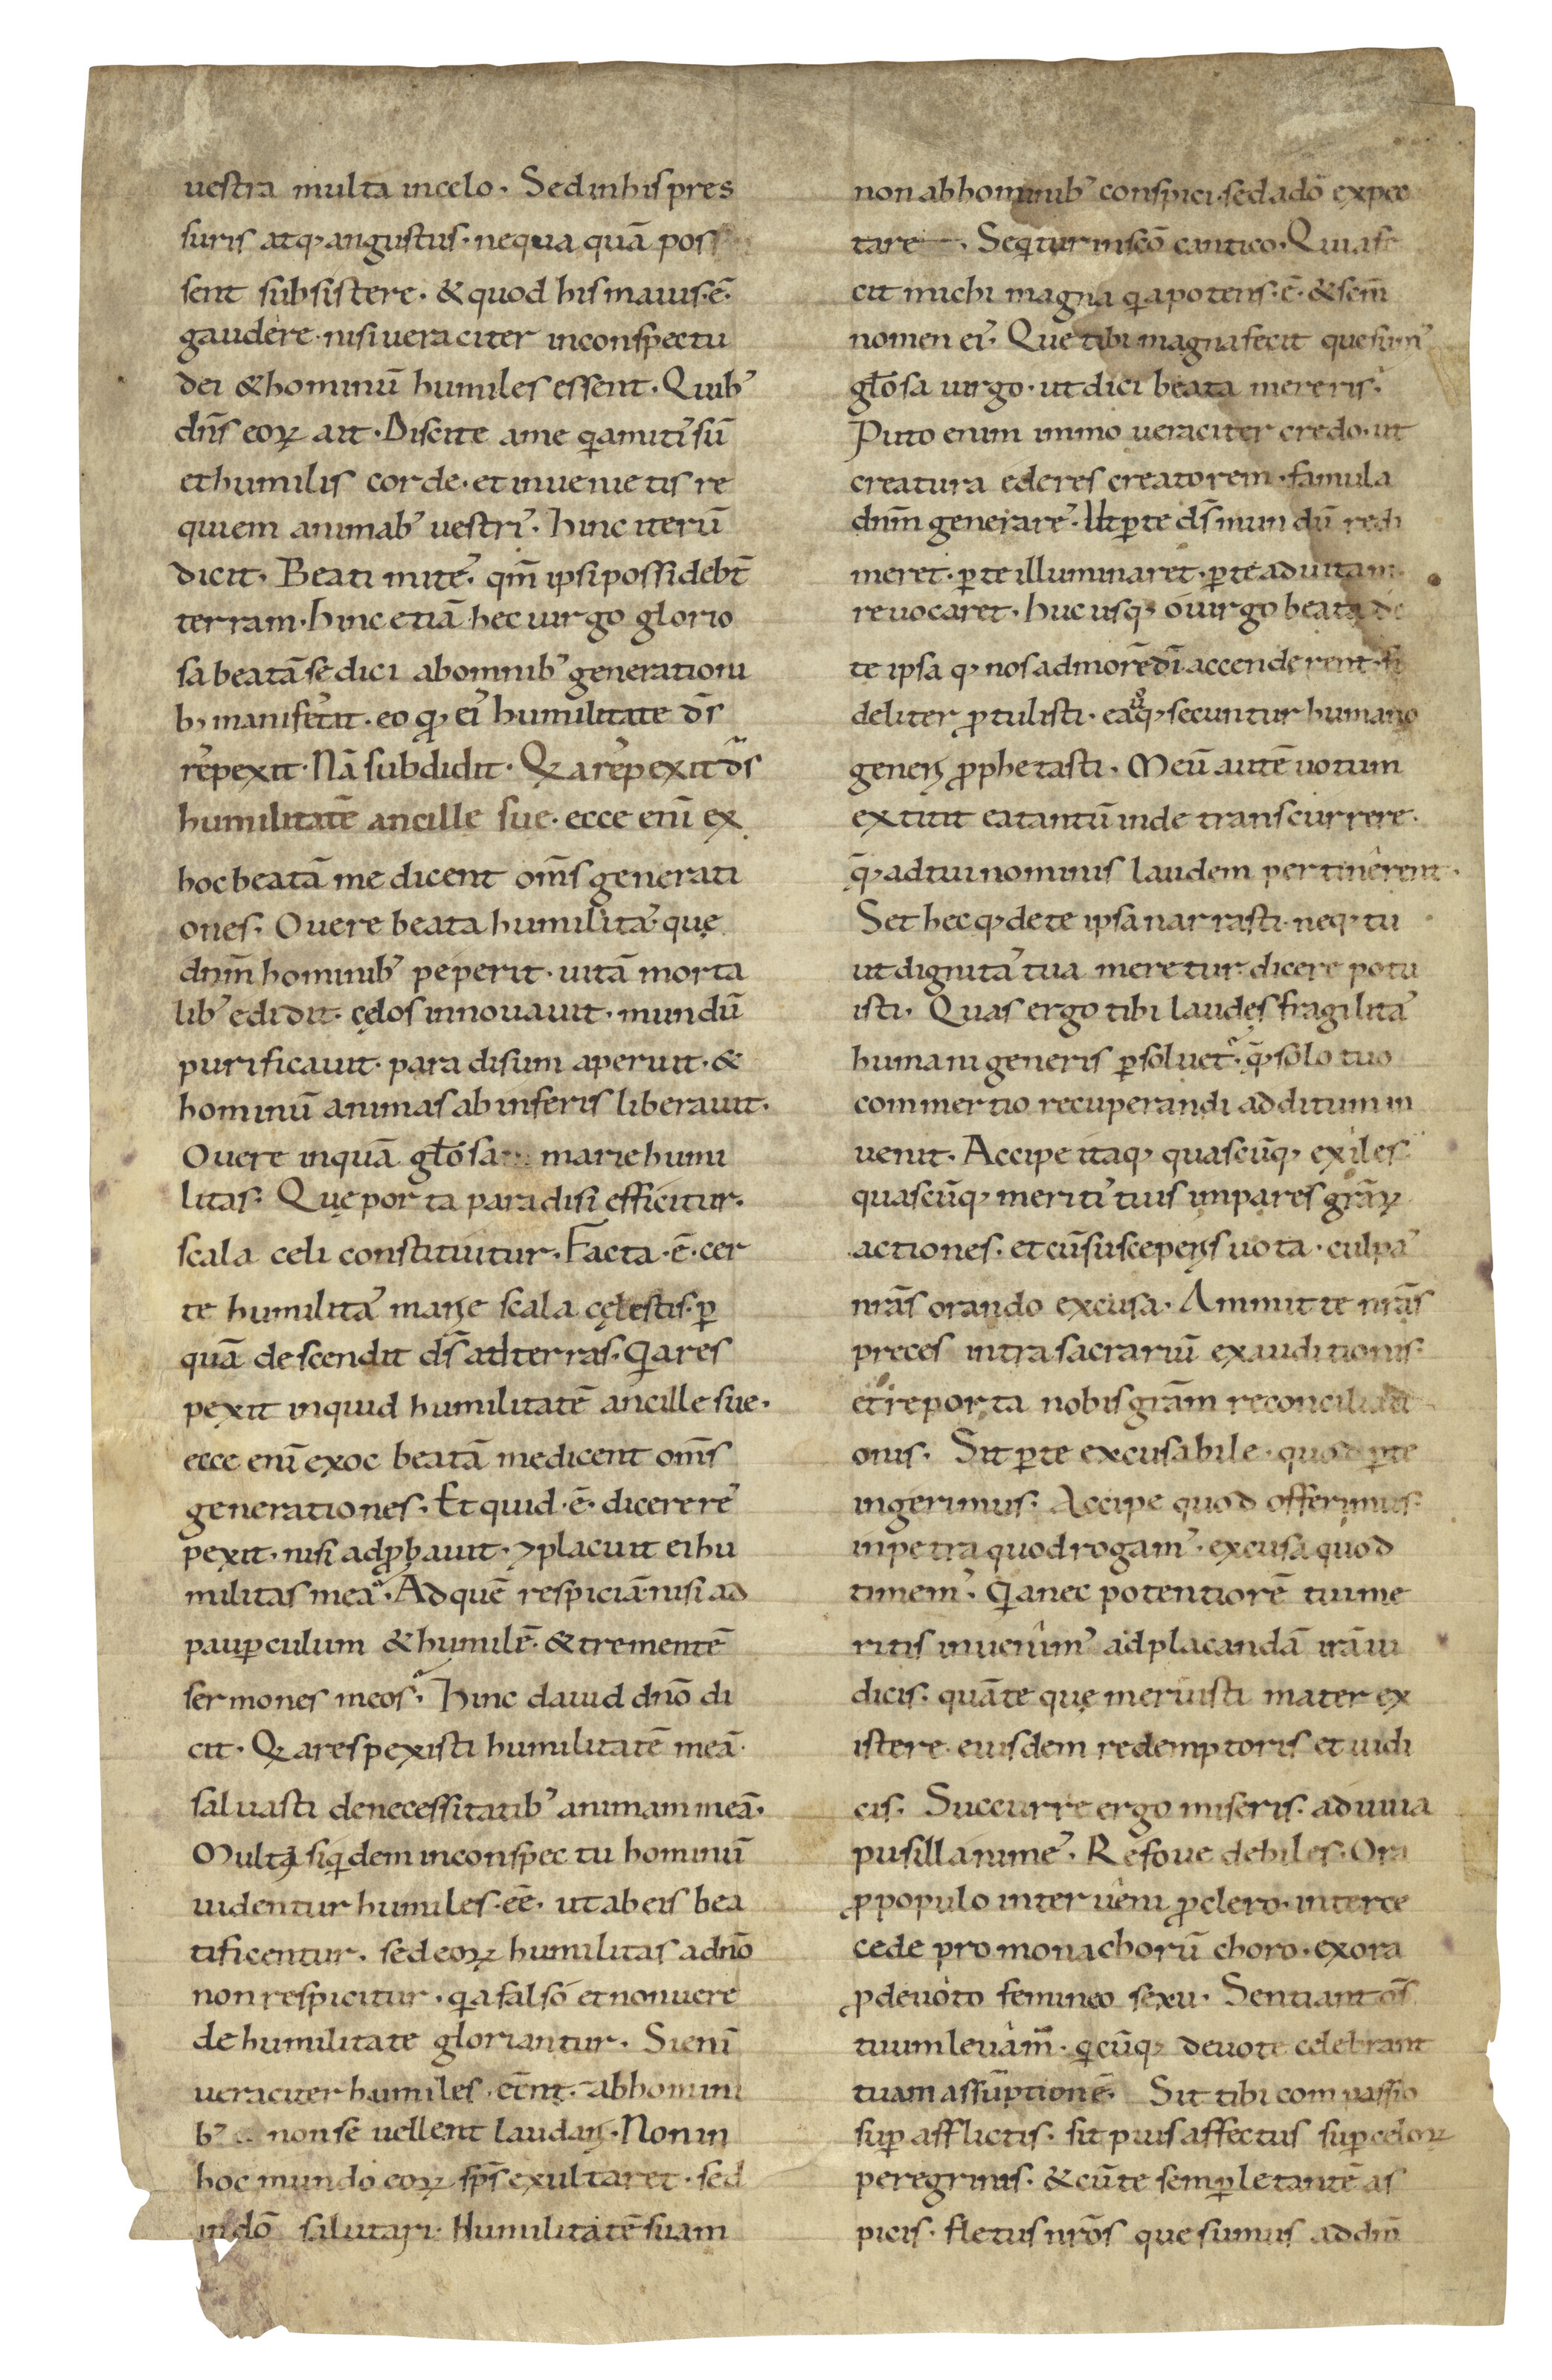 uestra multa incelo. Sedinhis pres
suris atq; angustus. nequa quā pos
sent subsistere. & quod his maius .ē.
gaudere. nisi ueraciter inconspectu
dei & hominū humiles essent. Quib᾽
dn̄s eoꝝ ait. Discite ame qͥa mitis᾽ sū
ethumilis corde. et inuenietis re
quiem animab᾽ uestri᾽. hinc iterū
dicit. Beati mite᾽. qm̄ ipsi possidebt̄
terram. hinc etiā hec uirgo glorio
sa beatā se dici abomnib᾽ generationi
b; manifet᾽it. eo qꝫ ei᾽ humilitatē d̄s
re᾽pexit. Nā subdidit. Qꝫ a re᾽pexit d̄s
humilitatē ancille sue. ecce eni᷄ ex
hoc beatā me dicent om̄s generati
ones. Ouere beata humilita᾽. quę
dnm̄ hominib᾽ peperit. uitā morta
lib᾽ edidit. cęlos innouauit. mundū
purificauit. paradisum aperuit. &
hominū animas ab inferis liberauit.
Ouere inquā gl̄osa marie humi
litas. Quę porta paradisi efficitur.
scala celi constituitur. Facta .ē. cer
te humilita᾽ marie scala cęlestis. ꝑ
quā descendit d̄s ad terras. Qͥa res
pexit inquid humilitatē ancille sue.
ecce enī exoc beatā me dicent om̄s
generationes. Et quid .ē. dicere re᾽
pexit. nisi adꝓbauit. ⁊ placuit ei hu
militas mea. Ad quē respiciā. nisi ad
pauꝑculum & humilē. & trementē
sermones meos. hinc dauid dn̄o di
cit. Qꝫ a respexisti humilitatē meā.
saluasti denecessitatib᾽ animam meā.
Multi siqͥdem inconspectu hominū
uidentur humiles .eē. ut ab eis bea
tificentur. sed eoꝝ humilitas adn̄o
non respicitur. qͥa falso et non uere
de humilitate gloriantur. Si enī
ueraciter humiles .eēnt. abhomini
b᾽ non se uellent laudari. Non in
hoc mundo eoꝝ sp̄s exultaret. sed
indō salutari. Humilitatē suam
non abhominib᾽ conspici. sed adō expec
tare. Seqͥtur insc̄o cantico. Quia fe
cit michi magna qͥa potens .ē. & scm̄
nomen ei᾽. Que tibi magna fecit quesum᾽
gl̄osa uirgo. ut dici beata mereris.
Puto enim immo ueraciter credo. ut
creatura ederes creatorem. famula
dnm̄ generare᾽. Ut ꝑ te d̄s mundū redi
meret. ꝑ te illuminaret. ꝑ te ad uitam
reuocaret. huc usq; o uirgo beata de
te ipsa q; nos admorē dī accenderent. fi
deliter ꝓtulisti. eaq; secuntur humano
generi ꝓphetasti. Meū autē uotum
extitit ea tantū inde transcurrere.
q̄; ad tui nominis laudem pertinerent.
Set hec q; dete ipsa narrasti. neq; tu
ut dignita᾽ tua meretur dicere potu
isti. Quas ergo tibi laudes fragilita᾽
humani generis ꝑsoluet. q̄; solo tuo
commertio recuperandi additum in
uenit. Accipe itaq; quascūq; exiles
quascūq; meriti᾽ tuis impares gr̄aꝝ
actiones. et cū susceperis uota. culpa᾽
nr̄as orando excusa. Ammitte nr̄as
preces intra sacrariū exauditionis.
et reporta nobis gr̄am reconciliati
onis. Sit ꝑ te excusabile. quod ꝑ te
ingerimus. Accipe quod offerimus.
inpetra quod rogam᾽. excusa quod
timem᾽. Qͥa nec potentiorē tui me
ritis inuenim᾽ ad placandā irā iu
dicis. quā te quę meruisti mater ex
istere eiusdem redemptoris et iudi
cis. Succurre ergo miseris. adiuua
pusillanime᾽. Refoue debiles. Ora
ꝓ populo interueni ꝓ clero. interce
cede pro monachorū choro. exora
ꝓ deuoto femineo sexu. Sentiant om̄s
tuum leuam̄. qͥcūq; deuote celebrant
tuam assūptionē. Sit tibi compassio
suꝑ afflictis. sit pius affectus suꝑ celoꝝ
peregrinis. & cū te semꝑ letantē as
picis. fletus nr̄os que sumus ad dnī